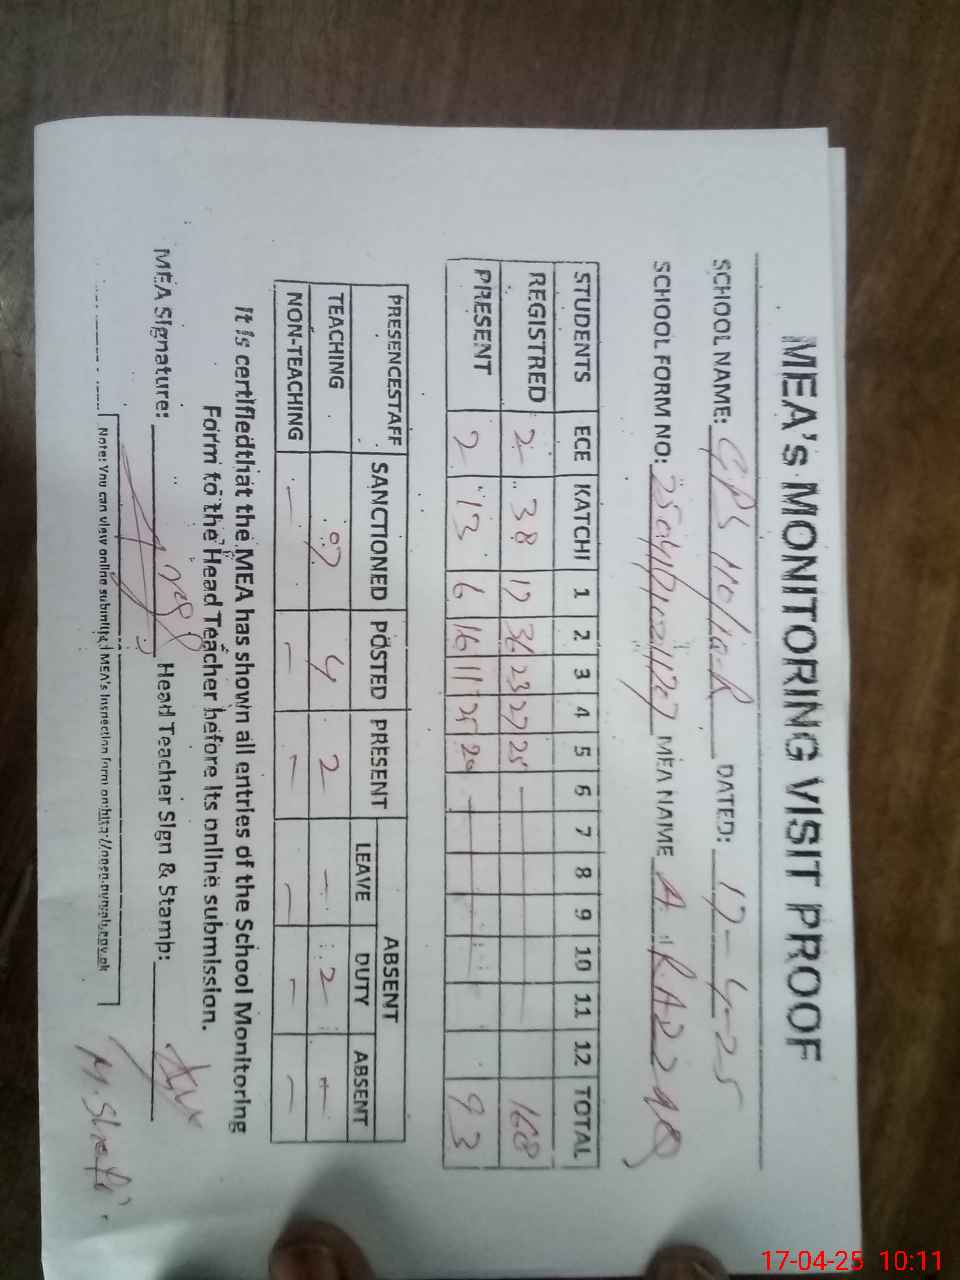 MEA's MONITORING VISIT PROOF
SCHOOL NAME: GPS DATED: 17-4-25
SCHOOL FORM NO: MEA NAME A. RAZZAQ
STUDENTS ECE KATCHI 1 2 3 4 5 6 7 8 9 10 11 12 TOTAL
REGISTRED 2 38 17 36 23 27 25 168
PRESENT 2 13 6 16 11 25 20 93
PRESENCESTAFF SANCTIONED POSTED PRESENT ABSENT
LEAVE DUTY ABSENT
TEACHING 07 4 2 - 2 -
NON-TEACHING - - - - - -
It is certifiedthat the MEA has shown all entries of the School Monitoring
Form to the Head Teacher before its online submission.
MEA Signature: Head Teacher Sign & Stamp:
M. Shafi
Note: You can view online submitted MEA's Inspection form on
17-04-25 10:11